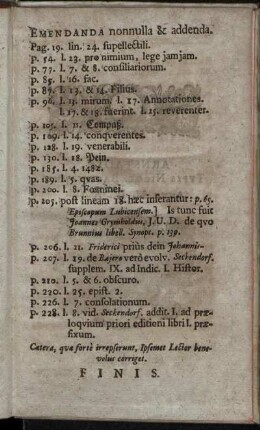 EMENDANDA nonnulla & addenda.
Pag. 19. lin. 24. supellectili.
p. 54. l. 23. pro nimium, lege jamjam.
p. 77. l. 7. & 8. consiliariorum.
p. 85. l. 16. fac.
p. 89. l. 13. & 14. Filius.
p. 96. l. 15. mirum, l. 17. Annotationes.
l. 17. & 18. fuerint. l. 25. reverenter.
p. 105. l. 11. Compaß.
p. 109. l. 14. conqverentes.
p. 128. l. 19. venerabili.
p. 130. l. 18. Pein.
p. 185. l. 4. 1482.
p. 189. l. 5. qvas.
p. 200. l. 8.
p. 205. post lineam 18. hæc inserantur: p. 65.
Episcopum Lubicensem.] Is tunc fuit
Joannes Grymholdus, J. U. D. de qvo
Brunnius libell. Synopt. p. 139.
p. 206. l. 11. Friderici priùs dein Johannis.
p. 207. l. 19. de Bajero verò evolv. Seckendorf.
supplem. IX. ad Indic. I. Histor.
p. 210. l. 5. & 6. obscuro.
p. 220. l. 25. epist. 2.
p. 226. l. 7. consolationum.
p. 228. l. 8. vid. Seckendorf. addit. I. ad præ-
loqvium priori editioni libri I. præ-
fixum.
Cætera, quæ fortè irrepserunt, Ipsemet Lector bene-
volus corriget.
FINIS.